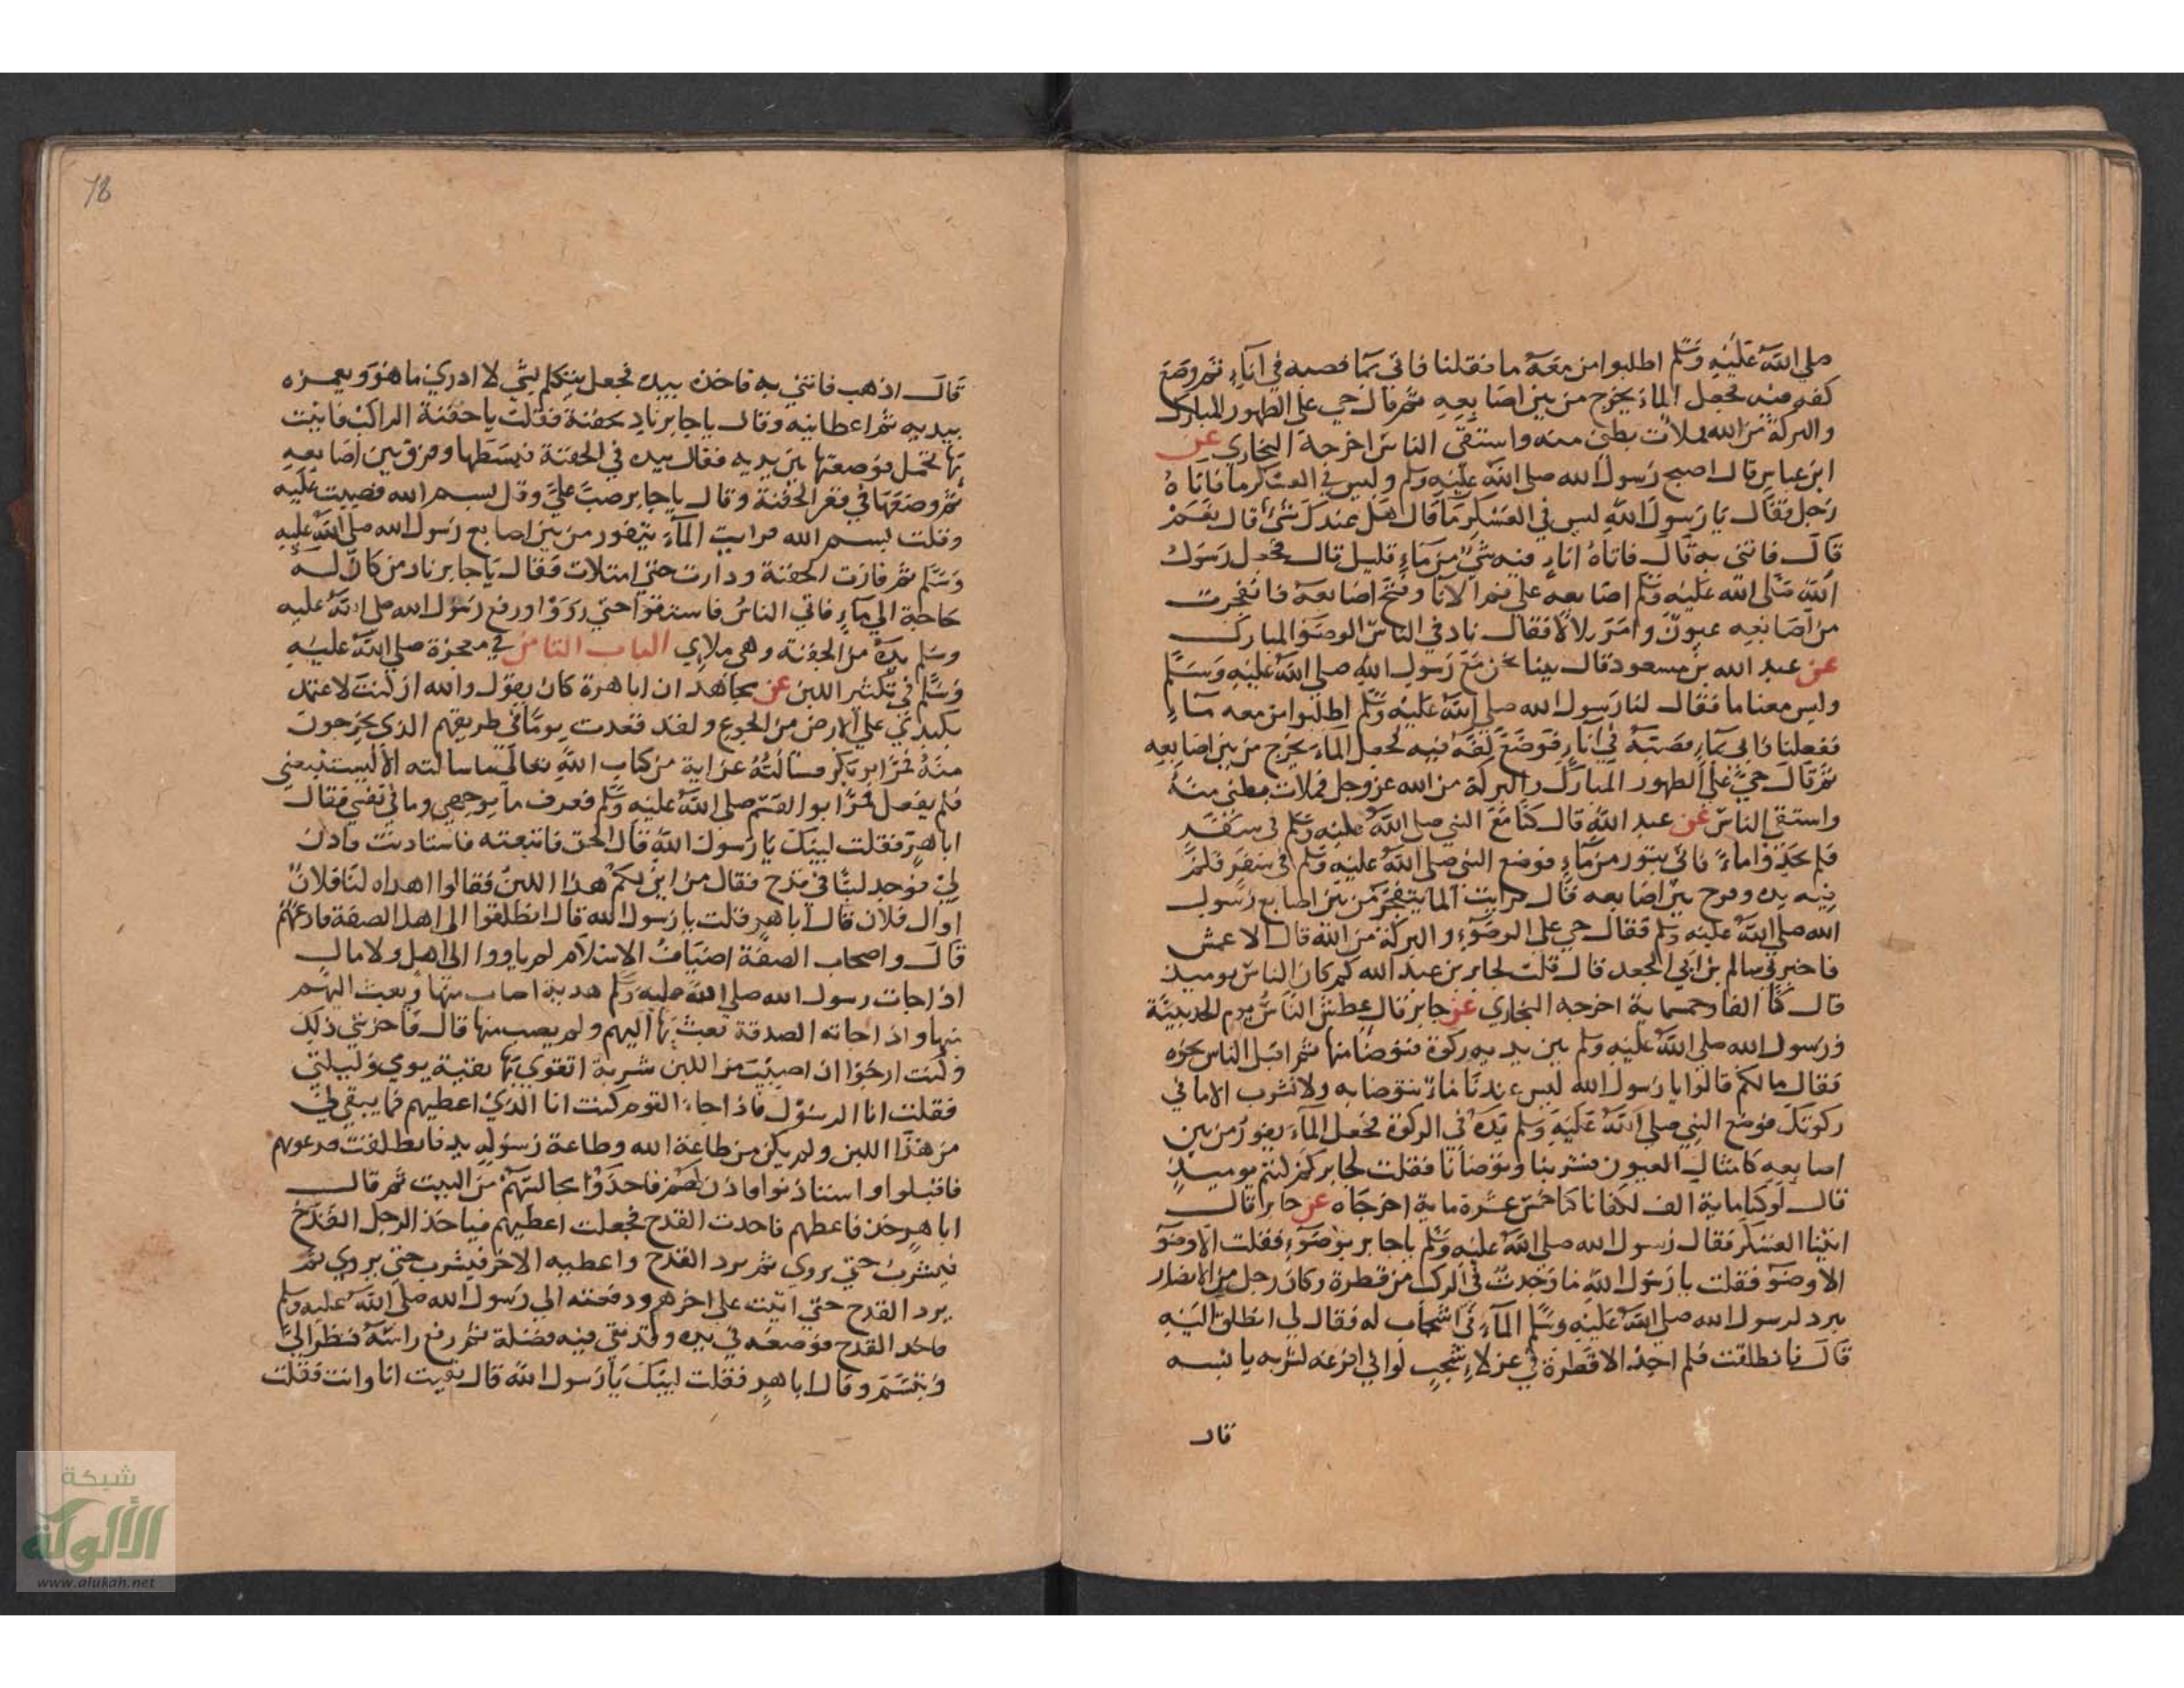 صلي الله عليه وسلم اطلبوا من معه ما فقلنا فاتى بما فصبه في اناء ثم وضع
كفه فيه فجعل الماء يخرج من بين اصابعه ثم قال حي على الطهور المبارك
والبركة من الله فملات بطني منه واستقى الناس اخرجه البخاري عن
ابن عباس قال اصبح رسول الله صلى الله عليه وسلم وليس في العسكر ما فاتاه
رجل فقال يا رسول الله ليس في العسكر ما قال هل عندك شئ قال نعم
قال فاتني به قال فاتاه اناء فيه شئ من ماء قليل قال فجعل رسول
الله صلى الله عليه وسلم اصابعه على فم الانا وفتح اصابعه فانفجرت
من اصابعه عيون وامر بلالا فقال ناد في الناس الوضو المبارك
عن عبد الله بن مسعود قال بينا نحن مع رسول الله صلى الله عليه وسلم
وليس معنا ما فقال لنا رسول الله صلي الله عليه وسلم اطلبوا من معه ماء
ففعلنا فاتى بماء فصبه في اناء فوضع كفه فيه فجعل الماء يخرج من بين اصابعه
ثم قال حي على الطهور المبارك والبركة من الله عز وجل فملات بطني منه
واستقي الناس عن عبد الله قال كنا مع النبي صلى الله عليه وسلم في سفر
فلم نجدوا ماء فاتي بتور من ماء فوضع النبي صلى الله عليه وسلم في سفر فلم
فيه يده وفرج بين اصابعه قال فرايت الما يتفجر من بين اصابع رسول
الله صلي الله عليه وسلم فقال حي على الوضوء والبركة من الله قال الاعمش
فاخبرني سالم بن ابي الجعد قال قلت لجابر بن عبد الله كم كان الناس يوميذ
قال كنا الفا وخمسماية اخرجه البخاري عن جابر قال عطش الناس يوم الحديبية
ورسول الله صلي الله عليه وسلم بين يديه ركوة فتوضا منها ثم اقبل الناس نحوه
فقال مالكم قالوا يا رسول الله ليس عندنا ماء نتوضا به ولا نشرب الا ما في
ركوتك فوضع النبي صلى الله عليه وسلم يده في الركوة فجعل الماء يفور من بين
اصابعه كامثال العيون فشربنا وتوضانا فقلت لجابر كم كنتم يوميذ
قال لو كنا ماية الف لكفانا كنا خمس عشرة ماية اخرجاه عن جابر قال
اتينا العسكر فقال رسول الله صلى الله عليه وسلم يا جابر بوضوء فقلت الا وضو
الا وضو فقلت يا رسول الله ما وجدت في الركب من قطرة وكان رجل من الانصار
يبرد لرسول الله صلي الله عليه وسلم الماء في اشجاب له فقال لي انطلق اليه
قال فانطلقت فلم اجد الا قطرة في عزلاء شجب لو اني افرغه لشربه يابسه
قال
78
قال اذهب فاتني به فاخذه بيده فجعل يتكلم بشئ لا ادري ما هو ويغمزه
بيديه ثم اعطانيه وقال يا جابر ناد بجفنة فقلت يا جفنة الراكب فاتيت
بها تحمل فوضعتها بين يديه فقال بيده في الجفنة فبسطها وفرق بين اصابعه
ثم وضعها في قعر الجفنة وقال يا جابر صب علي وقل بسم الله فصببت عليه
وقلت بسم الله فرايت الماء يتفور من بين اصابع رسول الله صلي الله عليه
وسلم ثم فارت الجفنة ودارت حتى امتلات فقال يا جابر ناد من كان له
حاجة الي ماء فاتي الناس فاستقوا حتى رووا ورفع رسول الله صلى الله عليه
وسلم يده من الجفنة وهي ملاي الباب الثامن في معجزة صلى الله عليه
وسلم في تكثير اللبن عن مجاهد ان ابا هرة كان يقول والله ان كنت لاعتمد
بكبدي على الارض من الجوع ولقد قعدت يوما في طريقهم الذي يخرجون
منه فمر ابو بكر فسالته عن اية من كتاب الله تعالى ما سالته الا ليستتبعني
فلم يفعل فمر ابو القسم صلى الله عليه وسلم فعرف ما بوجهي وما في نفسي فقال
ابا هر فقلت لبيك يا رسول الله قال الحق فاتبعته فاستاذنت فاذن
لي فوجد لبنا في قدح فقال من اين لكم هذا اللبن فقالوا اهداه لنا فلان
او ال فلان قال ابا هر قلت يا رسول الله قال انطلقوا الى اهل الصفة فادعهم
قال واصحاب الصفة اضياف الاسلام لم ياووا الى اهل ولا مال
اذا جات رسول الله صلى الله عليه وسلم هدية اصاب منها وبعث اليهم
منها واذا جاته الصدقة بعث بها اليهم ولم يصب منها قال فاحزنني ذلك
وكنت ارجوا ان اصيب من اللبن شربة اتقوي بها بقية يومي وليلتي
فقلت انا الرسول فاذا جاء القوم كنت انا الذي اعطيهم فما يبقى لي
من هذا اللبن ولم يكن من طاعة الله وطاعة رسوله بد فانطلقت فدعوتهم
فاقبلوا واستاذنوا فاذن لهم فاخذوا مجالسهم من البيت ثم قال
ابا هر خذ فاعطهم فاخذت القدح فجعلت اعطيهم فياخذ الرجل القدح
فيشرب حتي يروي ثم يرد القدح واعطيه الاخر فيشرب حتى يروي ثم
يرد القدح حتي اتيت على اخرهم ودفعته الي رسول الله صلى الله عليه وسلم
فاخذ القدح فوضعه في يده وقد بقي فيه فضلة ثم رفع راسه فنظر الي
وتبسم وقال ابا هر فقلت لبيك يا رسول الله قال بقيت انا وانت فقلت
شبكة
الألوكة
www.alukah.net